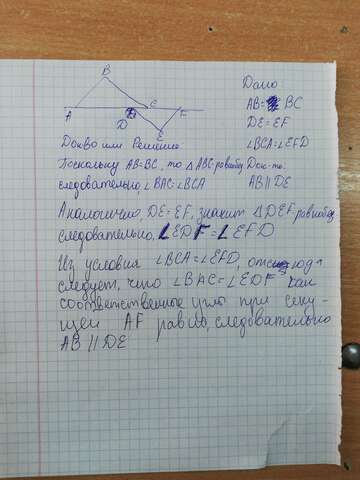 B
A
C
F
D
E
Дано
AB = BC
DE = EF
∠BCA = ∠EFD
Док-ть
AB || DE
Док-во или Решение
Поскольку AB=BC, то △ABC-равнобед,
следовательно, ∠BAC=∠BCA
Аналогично, DE=EF, значит △DEF-равнобед,
следовательно, ∠EDF=∠EFD
Из условия ∠BCA=∠EFD, отсюда
следует, что ∠BAC=∠EDF как
соответственные угло при секу-
щей AF равно, следовательно
AB || DE